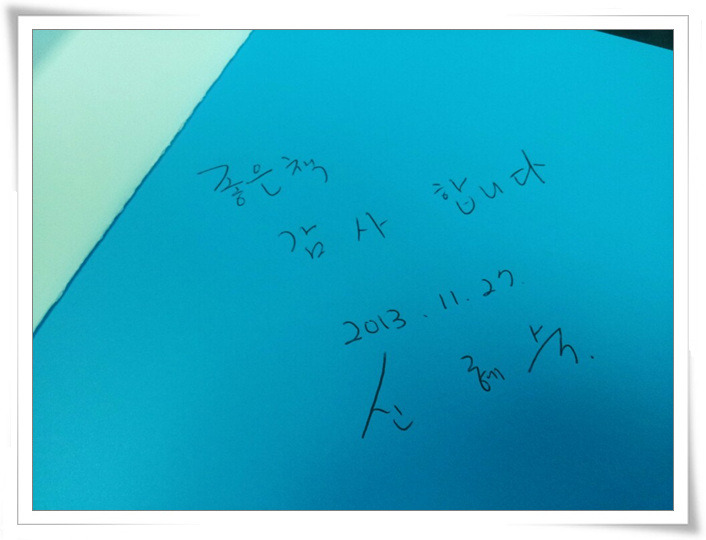 좋은책
감사 합니다
2013. 11. 27.
신